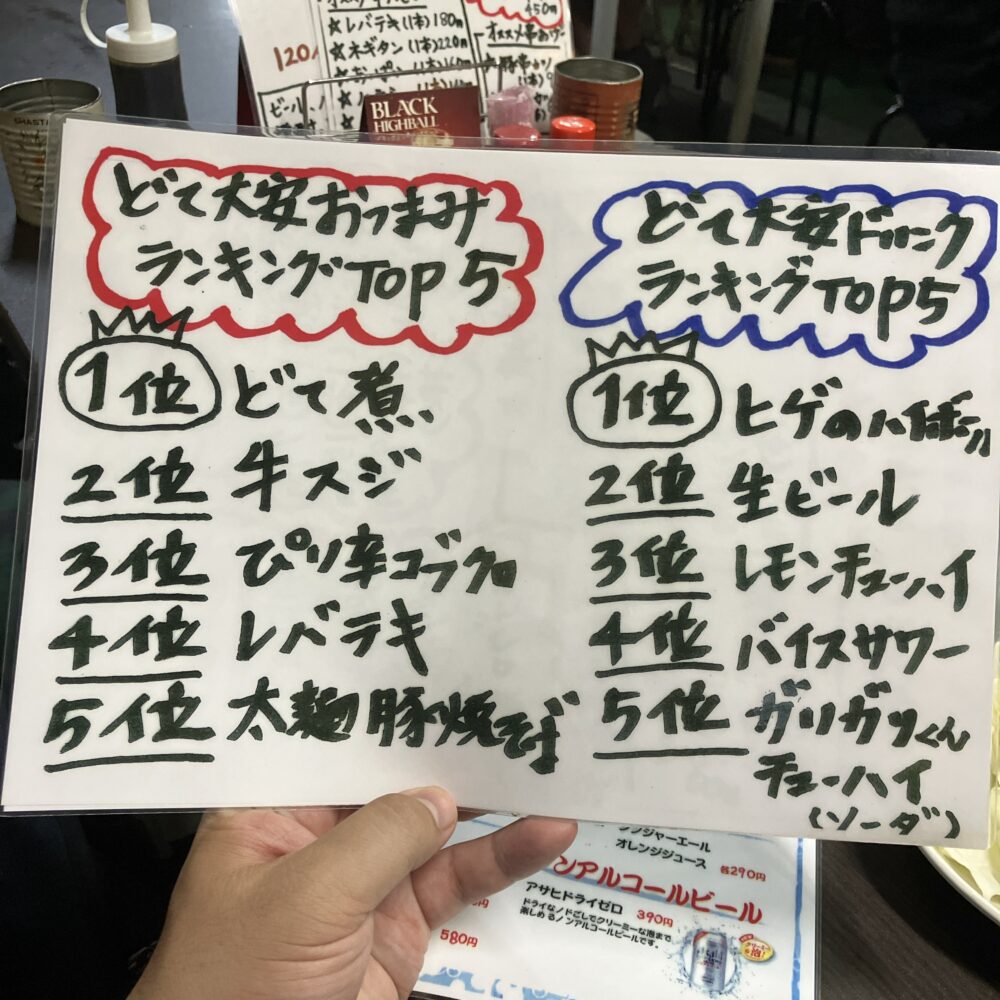 450m
レバテキ(1本)180m
ネギタン(1本)220m
120
BLACK
HIGHBALL
どて大安おつまみ
ランキングTOP5
1位 どて煮
2位 牛スジ
3位 ぴり辛コブクロ
4位 レバテキ
5位 太麺豚焼そば
どて大安ドリンク
ランキングTOP5
1位 ヒゲのハイボール
2位 生ビール
3位 レモンチューハイ
4位 バイスサワー
5位 ガリガリくん
チューハイ
(ソーダ)
ジンジャーエール
オレンジジュース 各290円
ンアルコールビール
アサヒドライゼロ 390円
ドライなノドごしでクリーミーな泡まで
楽しめるノンアルコールビールです。
580円